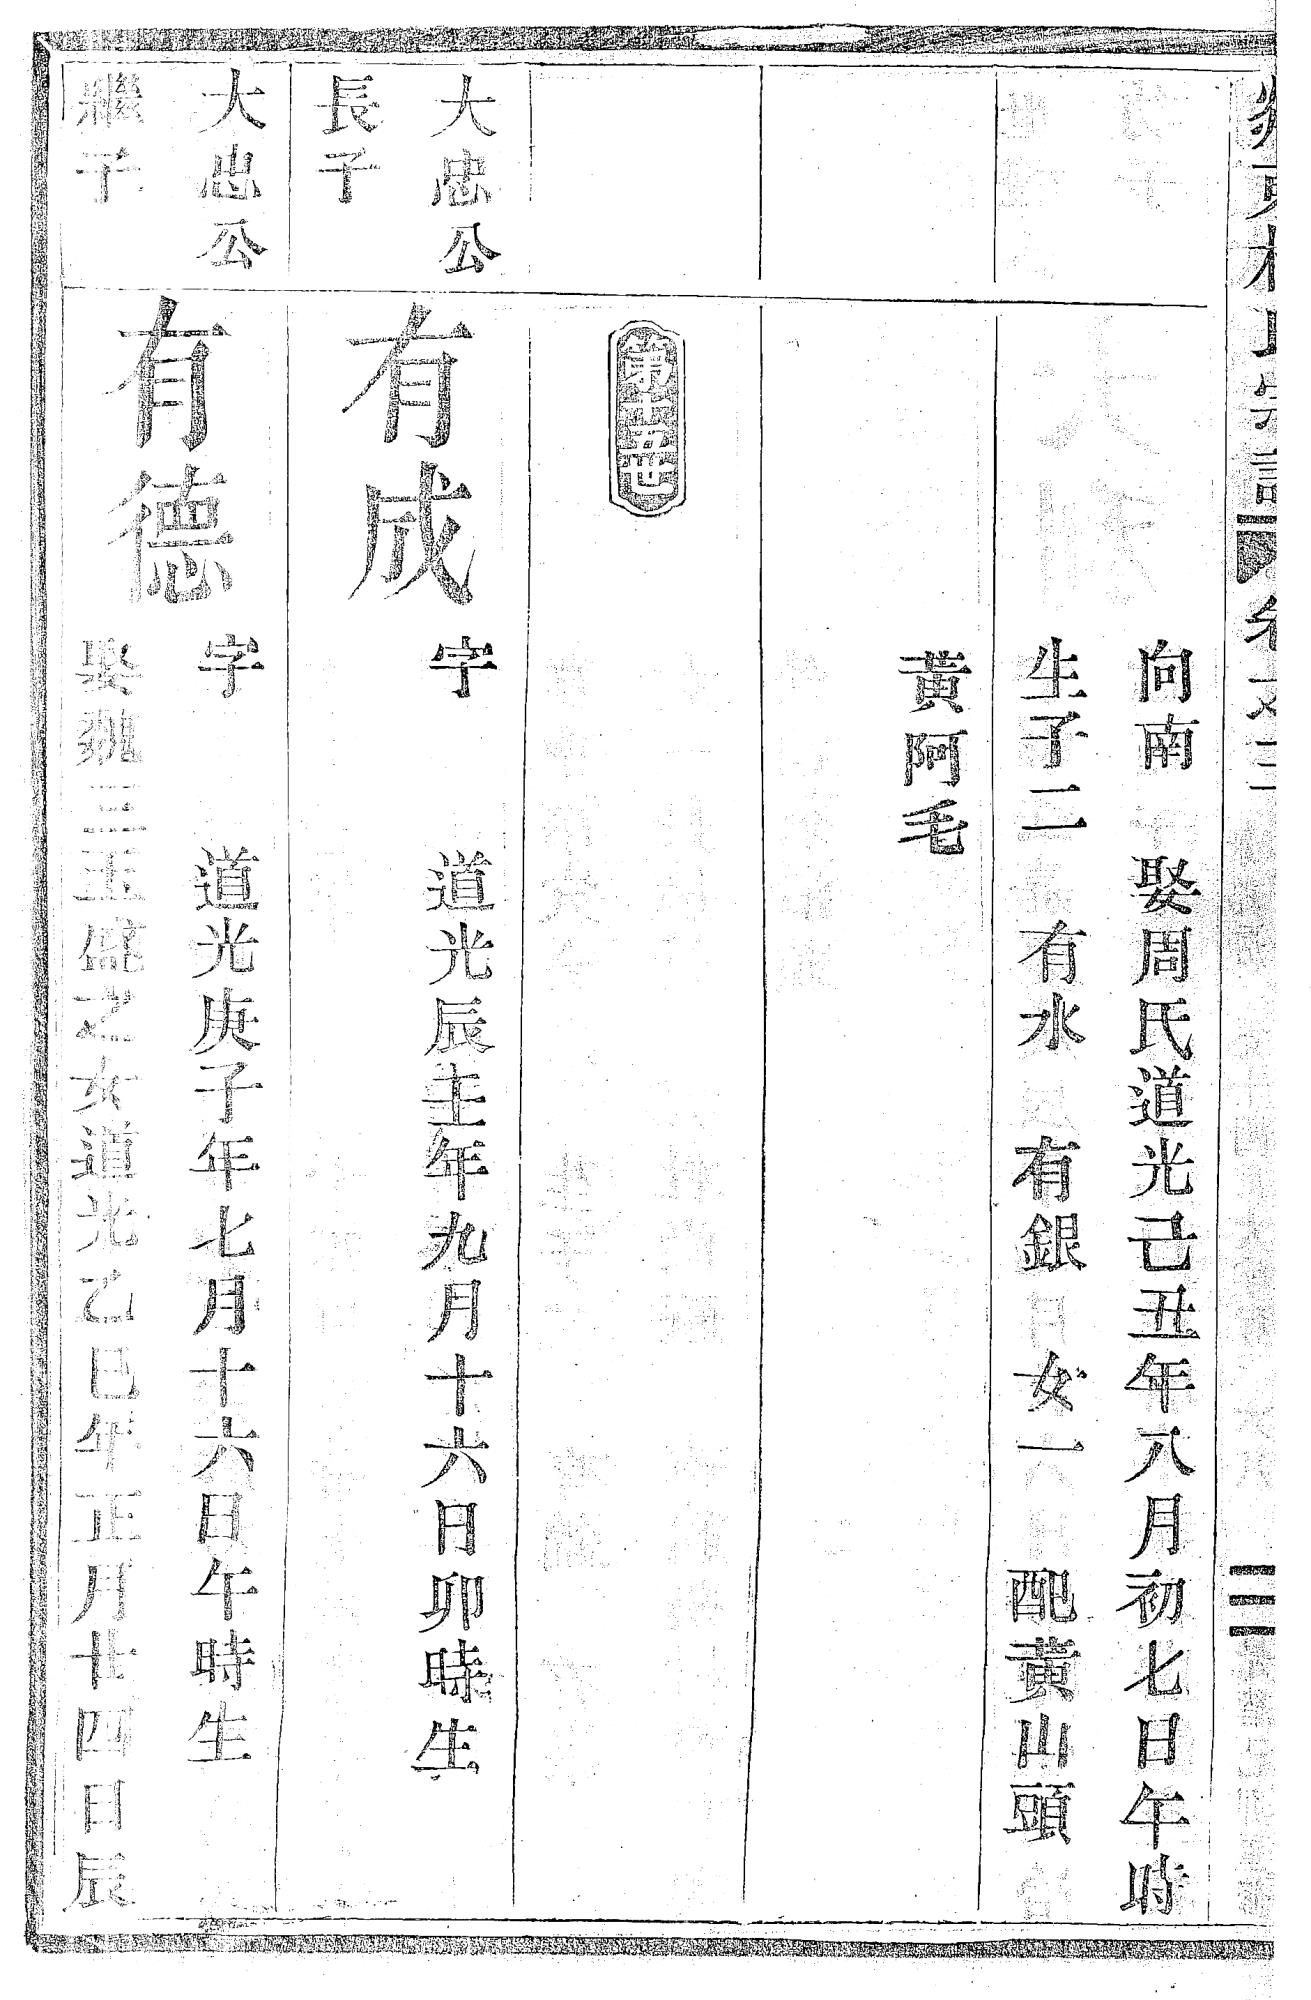 向南 娶周氏道光己丑年八月初七日午時
生子二 有水 有銀 女一 配黃山頭
黃阿毛
第十五世
大忠公
長子
有成
字 道光辰主年九月十六日卯時生
大忠公
繼子
有德
字 道光庚子年七月十六日午時生
娶魏三玉儲之女道光乙巳年正月廿四日辰